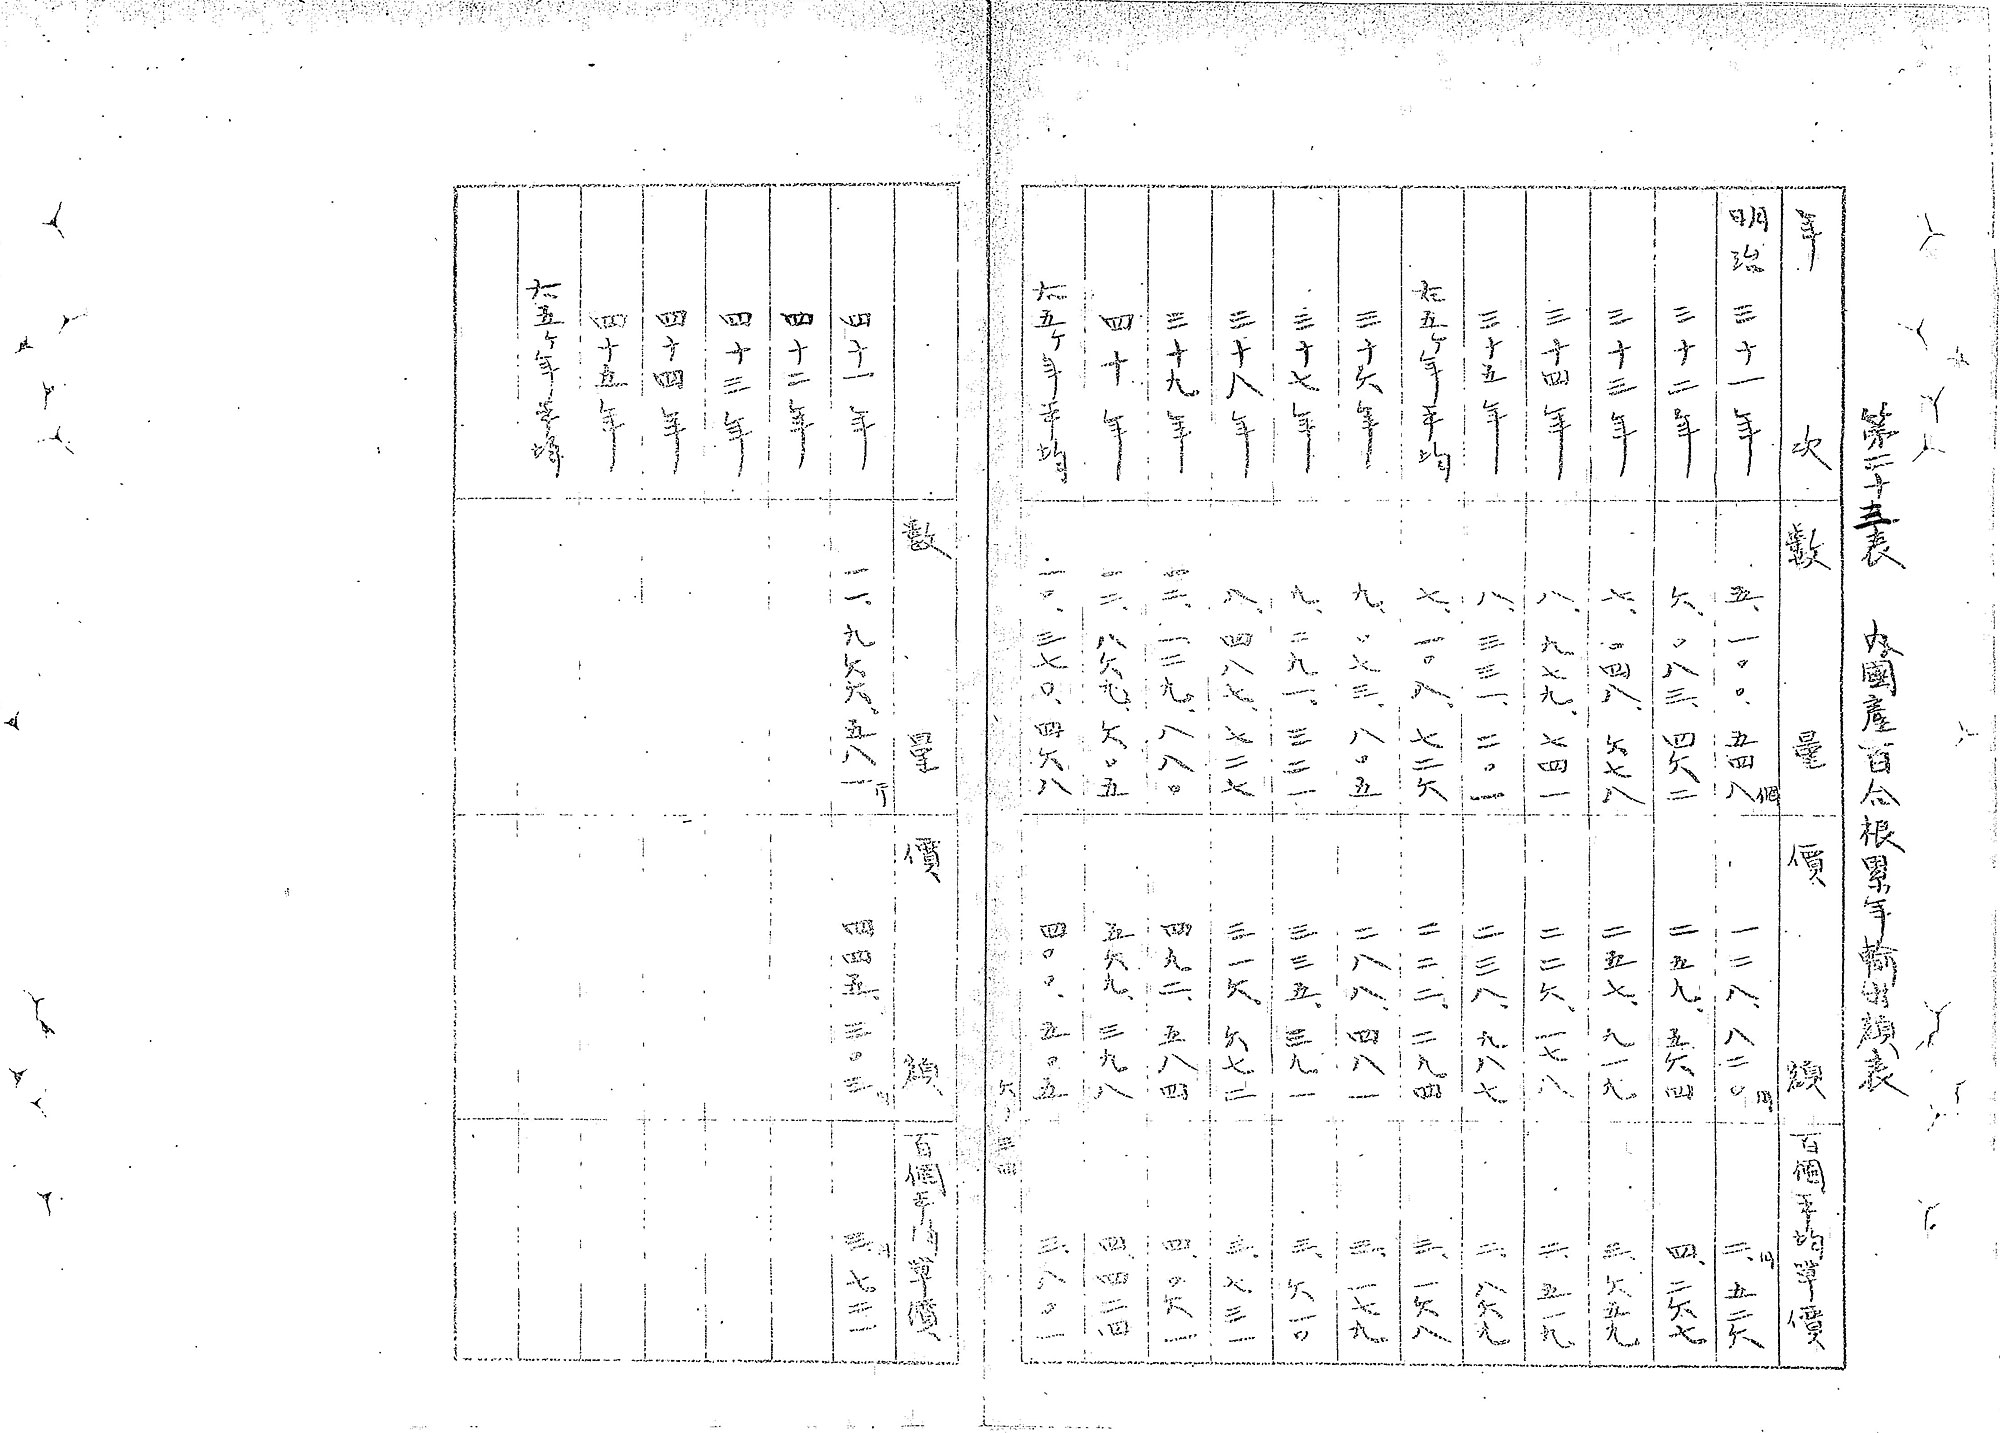 第二十三表 内國產百合根累年輸出額表
年次 數量 價額 百個平均單價
明治三十一年 五、一〇〇、五四八個 一二八、八二〇円 二、円五二六
三十二年 六、〇八三、四六二 二五九、五六四 四、二六七
三十三年 七、〇四八、六七八 二五七、九一九 三、六五九
三十四年 八、九七九、七四一 二二六、一七八 二、五一九
三十五年 八、三三一、二〇一 二三八、九八七 二、八六九
右五ケ年平均 七、一〇八、七二六 二二二、二九四 三、一六八
三十六年 九、〇七三、八〇五 二八八、四八一 三、一七九
三十七年 九、二九一、三二一 三三五、三九一 三、六一〇
三十八年 八、四八七、七二七 三一六、六七二 三、七三一
三十九年 一二、一二九、八八〇 四九二、五八四 四、〇六一
四十年 一二、八六九、六〇五 五六九、三九八 四、四二四
右五ケ年平均 一〇、三七〇、四六八 四〇〇、五〇五 三、八〇一
六、三四
數量 價額 百個平均單價
四十一年 一一、九六六、五八一斤 四四五、三〇三円 三、円七二一
四十二年
四十三年
四十四年
四十五年
右五ケ年平均